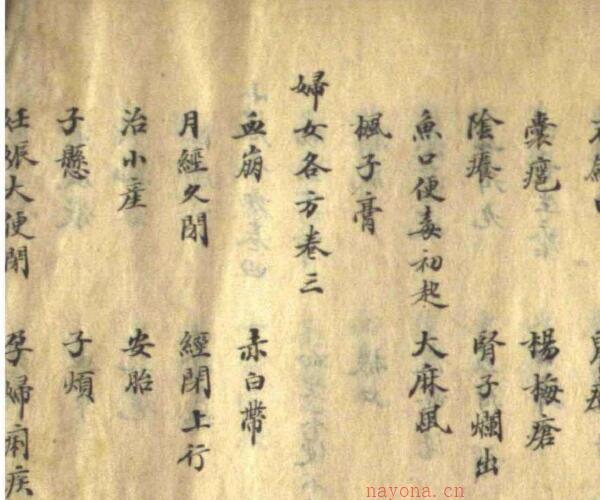 囊疤　楊梅瘡
陰癢　腎子爛出
魚口便毒初起　大麻風
楓子膏
婦女各方卷三
血崩　赤白帶
月經久閉　經閉上行
治小產　安胎
子懸　子煩
大便閉　孕婦痢疾
nayona.cn